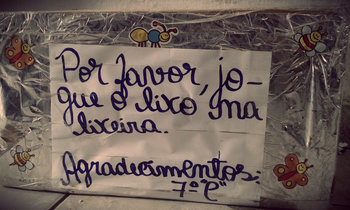 Por favor, jo-
gue o lixo na
lixeira.
Agradecimentos:
7º "C"